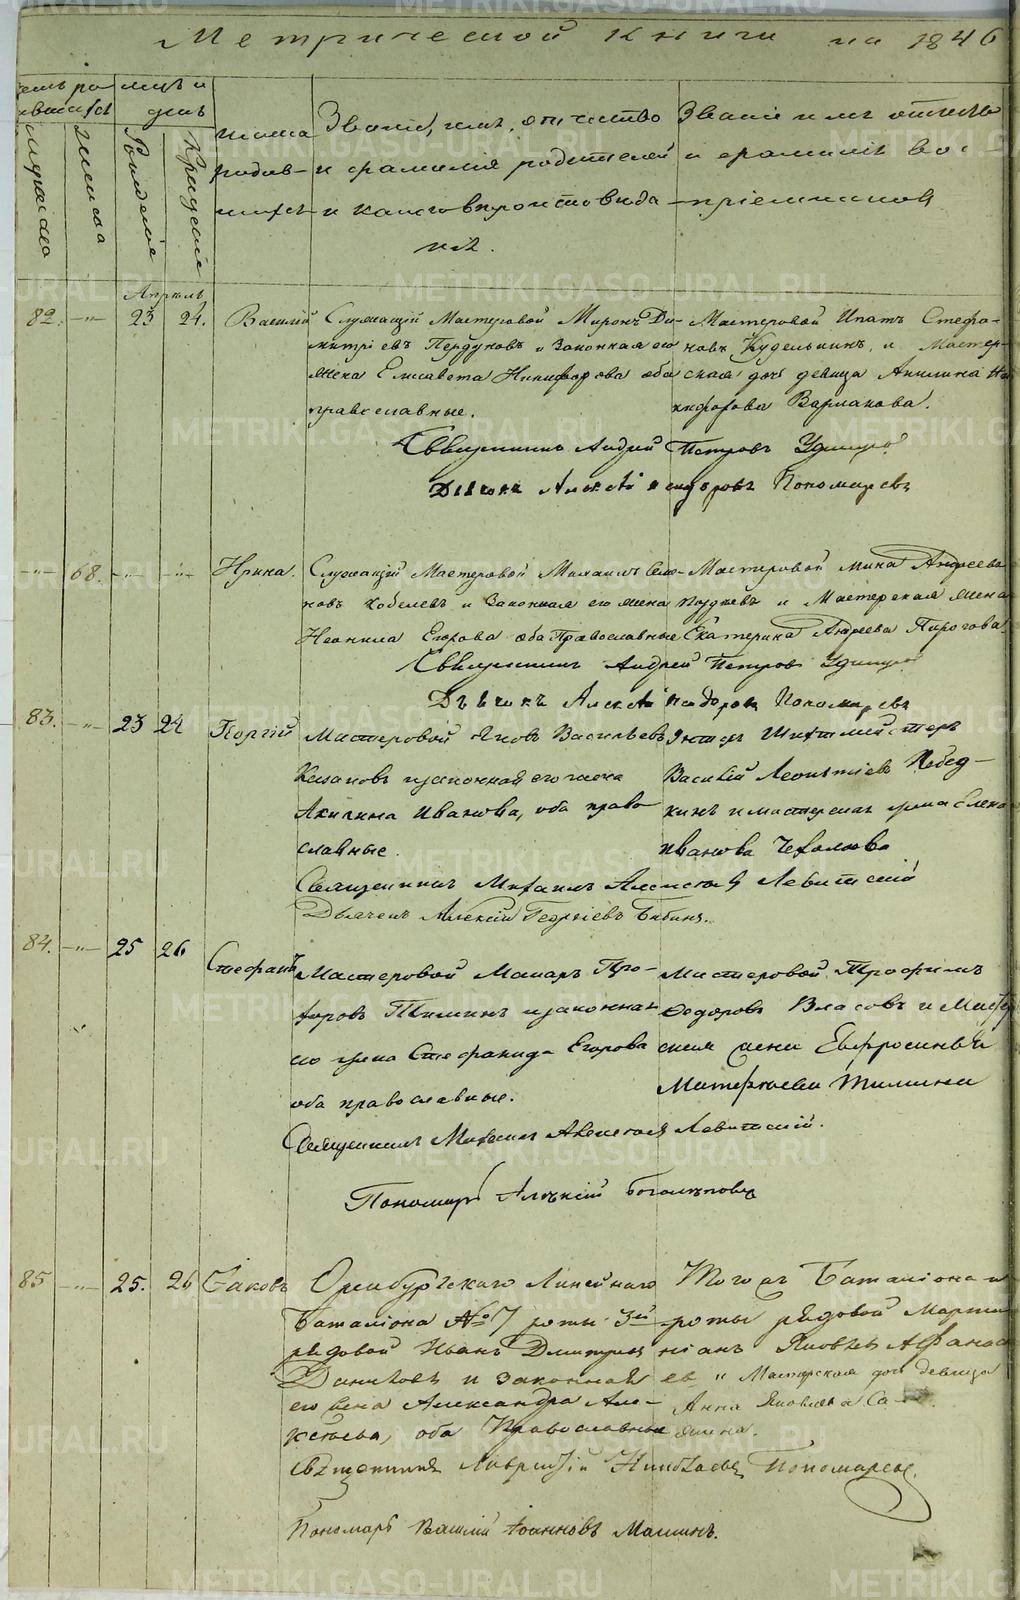 Метрической книги на 1846
мѣсяцъ и
день
Рожденіе
Крещеніе
женска
имена
родив-
шихся
Званіе, имя, отчество
и фамилія родителей
и какого вѣроисповѣда
нія.
Званіе имя отчество
и фамилія вос
пріемниковъ
Апрѣль
82. -"- 23 24. Василій
Служащій Мастеровой Миронъ Ди-
митріевъ Пердуновъ и Законная его
жена Елисавета Никифорова оба
православные.
Мастеровой Ипатъ Стефа-
новъ Куделькинъ, и Мастер-
ская дочь девица Акилина Ни
кифорова Варлакова.
Священникъ Андрей Петровъ Удинцовъ
Дьячокъ Алексѣй Исидоровъ Пономаревъ
-"- 68. -"- -"- Ирина.
Служащій Мастеровой Михаилъ Семе-
новъ Кобелевъ и Законная его жена
Неонила Егорова оба Православные
Мастеровой Мина Андреевъ
и Мастерская жена
Екатерина Андреева Пирогова.
Священникъ Андрей Петровъ Удинцовъ
Дьячокъ Алексѣй Исидоровъ Пономаревъ
83. -"- 23 24 Георгій
Мастеровой Яковъ Васильевъ
Казаковъ и законная его жена
Акилина Иванова, оба право
славные.
Шихтмейстеръ
Василій Леонтіевъ
кинъ и мастерская жена Елена
Иванова
Священникъ Михаилъ Алексѣевъ Левитскій
Дьячекъ Алексій Георгіевъ Бибинъ.
84. -"- 25 26 Стефанъ
Мастеровой Макаръ Про-
хоровъ Тиминъ и законная
его жена Стефанида Егорова
оба православные.
Мастеровой Трофимъ
Ѳедоровъ Власовъ и Мастер
ская жена Евфросинья
Матфеева Тимина
Священникъ Михаилъ Алексѣевъ Левитскій.
Пономарь Алексій Боголѣповъ
85 -"- 25. 26 Іаковъ
Оренбургскаго Линейнаго
Баталіона №7 роты 3й
рядовой Иванъ Дмитріевъ
Даниловъ и законная
его жена Александра Але-
ксѣева, оба Православные
Того жъ Баталіона и
роты рядовой Марти
ніанъ Яковлевъ Афанась
евъ и Мастерская дочь девица
Анна Яковлева Са-
мина.
Священникъ Лаврентій Николаевъ Пономаревъ.
Пономарь Василій Іоанновъ Маминъ.
METRIKI.GASO-URAL.RU